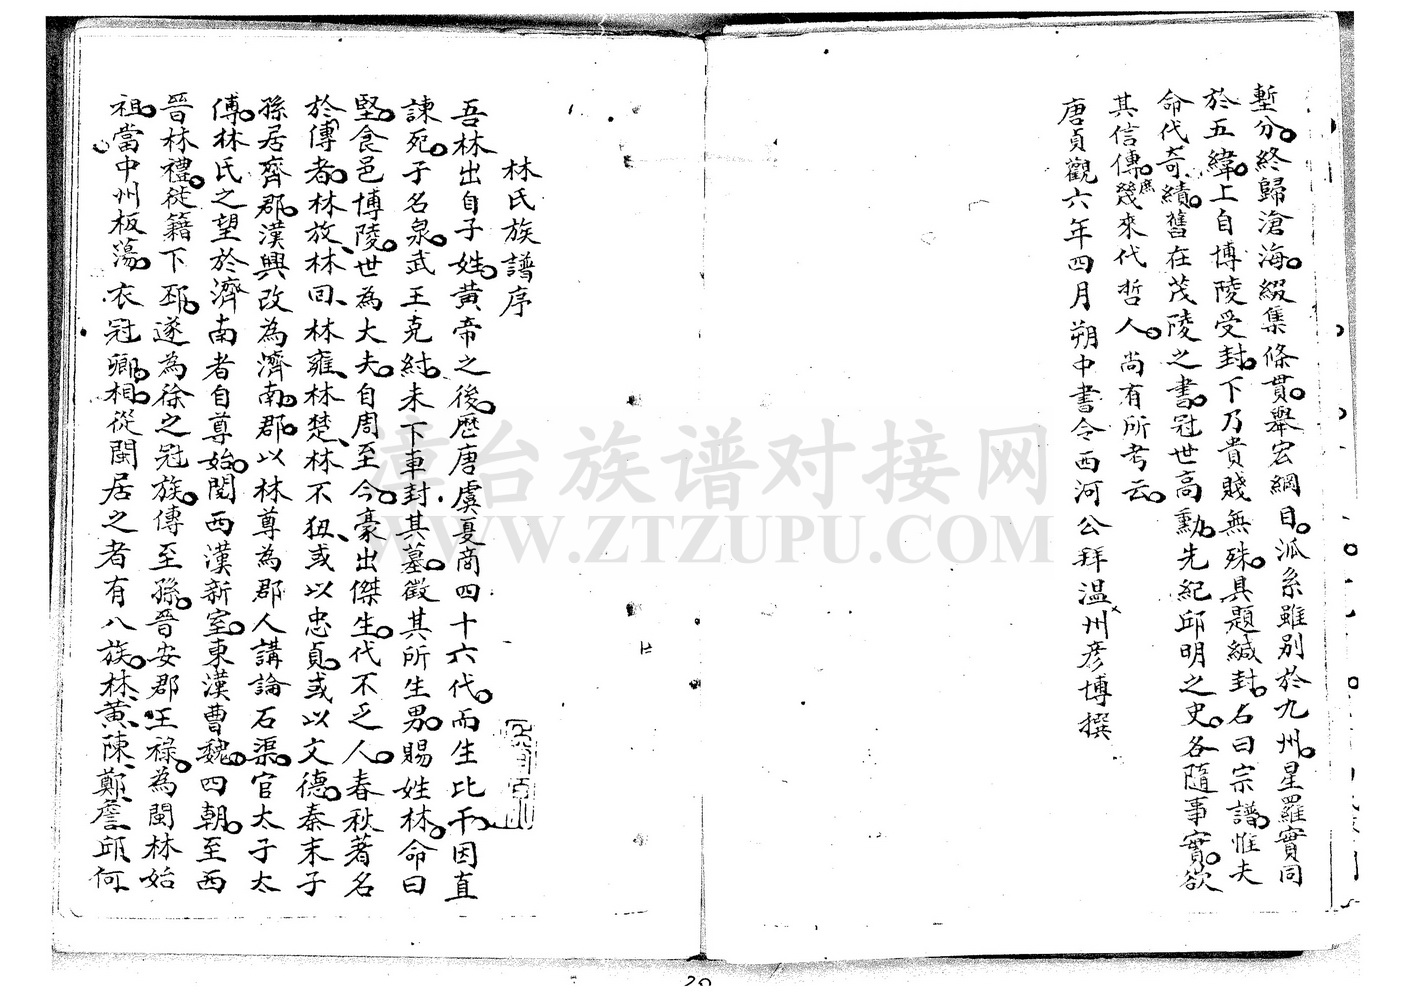 塹分終歸滄海綴集條貫舉宏綱目派系雖別於九州星羅實同
於五緯上自博陵受封下乃貴賤無殊具題緘封名曰宗譜惟夫
命代奇績舊在茂陵之書冠世高勳先紀邱明之史各隨事實欲
其信傳庶幾來代哲人尚有所考云
唐貞觀六年四月朔中書令西河公拜温州彦博撰
林氏族譜序
吾林出自子姓黃帝之後歷唐虞夏商四十六代而生比干因直
諫死子名泉武王克紂未下車封其墓徵其所生男賜姓林命曰
堅食邑博陵世為大夫自周至今豪出傑生代不乏人春秋著名
於傳者林放林回林雍林楚林不狃或以忠貞或以文德秦末子
孫居齊郡漢興改為濟南郡以林尊為郡人講論石渠官太子太
傅林氏之望於濟南者自尊始閱西漢新室東漢曹魏四朝至西
晉林禮徙籍下邳遂為徐之冠族傳至孫晉安郡王祿為閩林始
祖當中州板蕩衣冠卿相從閩居之者有八族林黃陳鄭詹邱何
漳台族谱对接网
WWW.ZTZUPU.COM
20